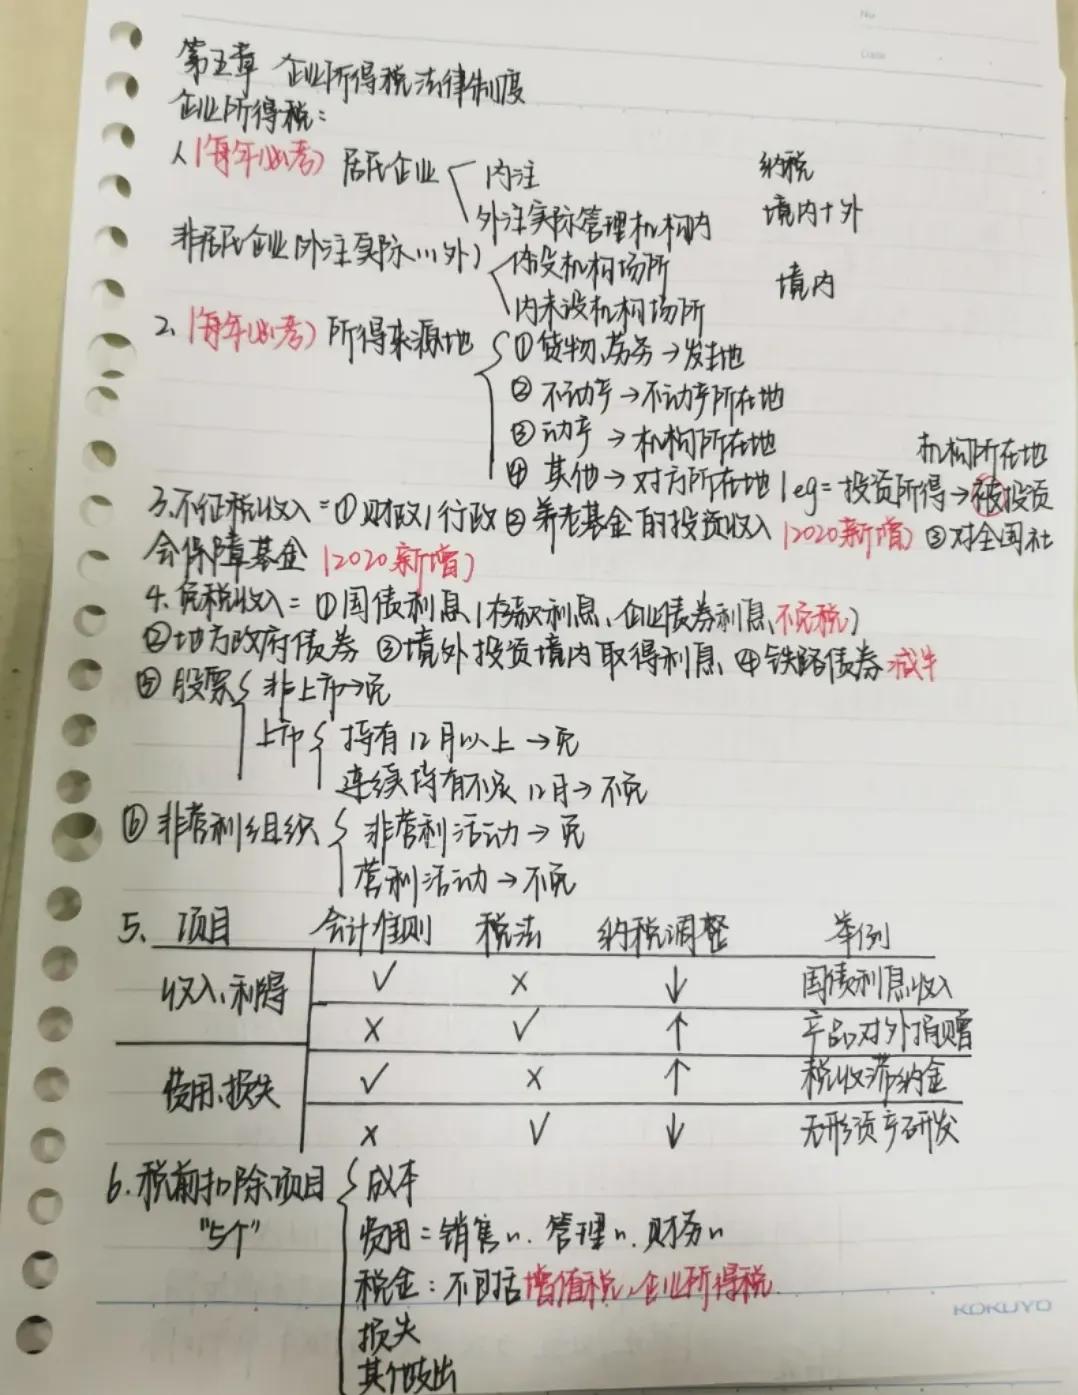 No
Date
第五章 企业所得税法律制度
企业所得税:
1、(每年必考) 居民企业 { 内注 纳税
外注实际管理机构内 境内+外
非居民企业(外注实际…外) { 内设机构场所 境内
内未设机构场所
2、(每年必考) 所得来源地 { ①货物、劳务→发生地
②不动产→不动产所在地
③动产→机构所在地
④其他→对方所在地(eg=投资所得→被投资
机构所在地
3、不征税收入=①财政、行政 ②养老基金的投资收入(2020新增) ③对全国社
会保障基金(2020新增)
4、免税收入=①国债利息(存款利息、企业债券利息不免税)
②地方政府债券 ③境外投资境内取得利息 ④铁路债券减半
⑤股票 { 非上市→免
上市 { 持有12月以上→免
连续持有不足12月→不免
⑥非营利组织 { 非营利活动→免
营利活动→不免
5、项目 会计准则 税法 纳税调整 举例
收入、利得 ✓ × ↓ 国债利息收入
× ✓ ↑ 产品对外捐赠
费用、损失 ✓ × ↑ 税收滞纳金
× ✓ ↓ 无形资产研发
6、税前扣除项目 { 成本
"5个" 费用=销售〃、管理〃、财务〃
税金:不包括增值税、企业所得税
损失
其他支出
KOKUYO